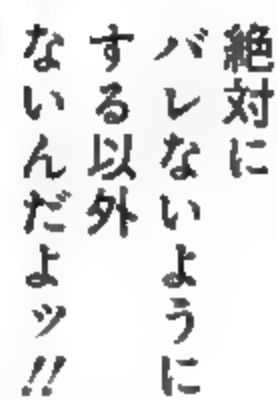 絶対に
バレないように
する以外
ないんだよッ!!